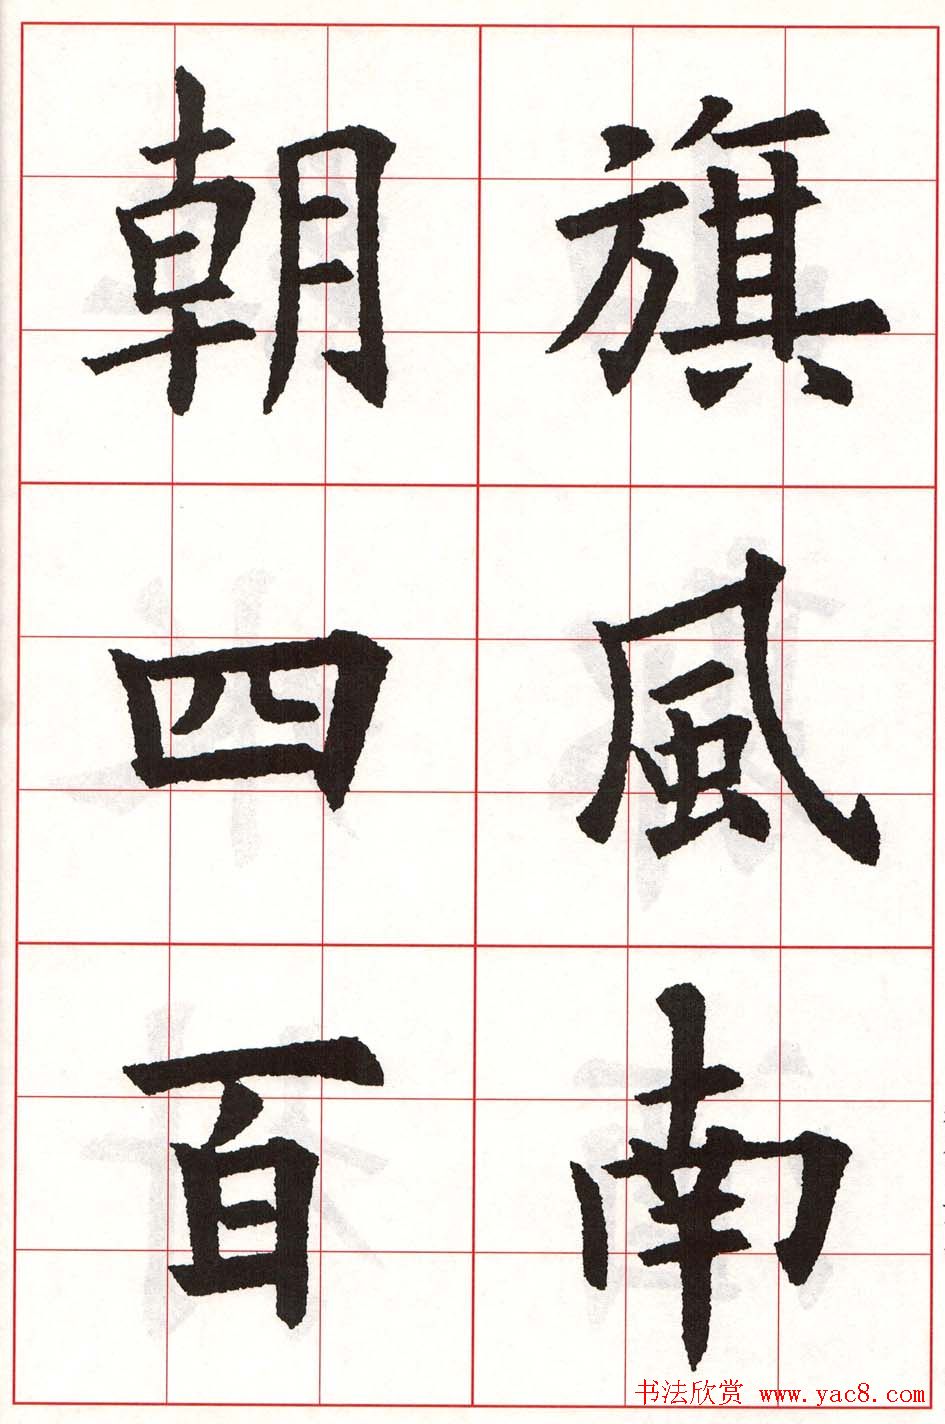 旗風南
朝四百
书法欣赏 www.yac8.com